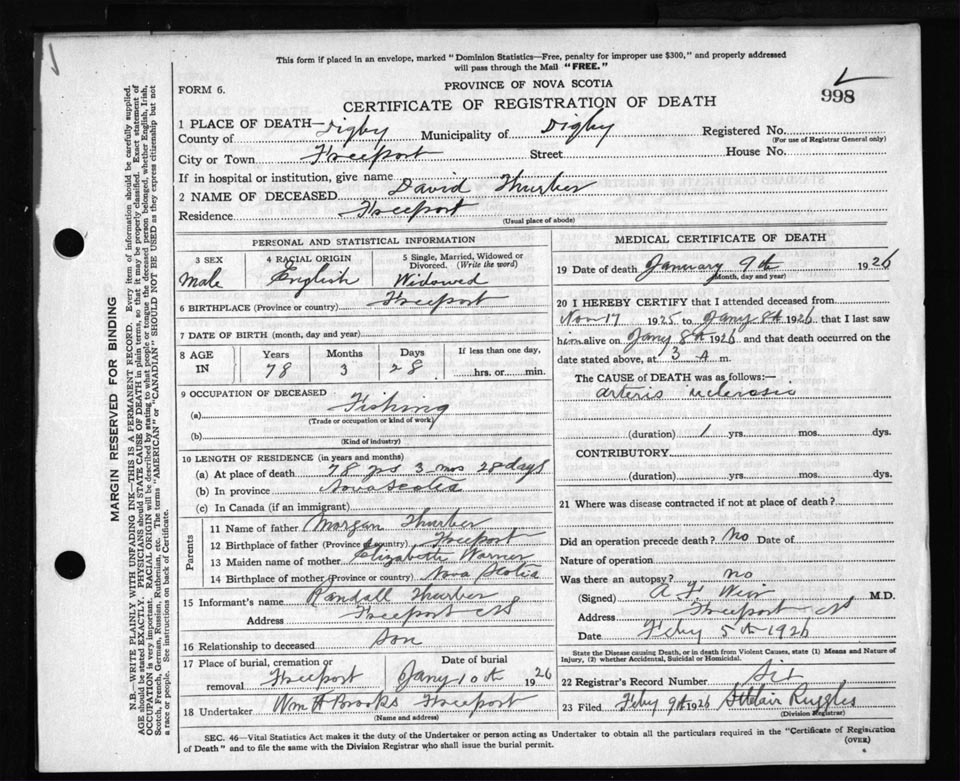 This form if placed in an envelope, marked "Dominion Statistics—Free, penalty for improper use $300," and properly addressed
will pass through the Mail "FREE."
FORM 6.
PROVINCE OF NOVA SCOTIA
998
CERTIFICATE OF REGISTRATION OF DEATH
1 PLACE OF DEATH—
County of Digby Municipality of Digby Registered No.
(For use of Registrar General only)
City or Town Freeport Street House No.
If in hospital or institution, give name
2 NAME OF DECEASED David Thurber
Residence Freeport
(Usual place of abode)
PERSONAL AND STATISTICAL INFORMATION
3 SEX 4 RACIAL ORIGIN 5 Single, Married, Widowed or Divorced. (Write the word)
Male English Widowed
6 BIRTHPLACE (Province or country) Freeport
7 DATE OF BIRTH (month, day and year)
8 AGE IN Years Months Days If less than one day,
78 3 28 hrs. or min.
9 OCCUPATION OF DECEASED
(a) Fishing
(Trade or occupation or kind of work)
(b)
(Kind of industry)
10 LENGTH OF RESIDENCE (in years and months)
(a) At place of death 78 yrs 3 mos 28 days
(b) In province Nova Scotia
(c) In Canada (if an immigrant)
Parents
11 Name of father Morgan Thurber
12 Birthplace of father (Province or country) Freeport
13 Maiden name of mother Elizabeth Warner
14 Birthplace of mother (Province or country) Nova Scotia
15 Informant's name Randall Thurber
Address Freeport NS
16 Relationship to deceased Son
17 Place of burial, cremation or removal Date of burial
Freeport Jany 10th 1926
18 Undertaker Wm H Brooks Freeport
(Name and address)
MEDICAL CERTIFICATE OF DEATH
19 Date of death January 9th 1926
(Month, day and year)
20 I HEREBY CERTIFY that I attended deceased from
Nov 17 1925 to Jany 8th 1926 that I last saw
him alive on Jany 8th 1926 and that death occurred on the
date stated above, at 3 A m.
The CAUSE OF DEATH was as follows:—
arterio sclerosis
(duration) 1 yrs. mos. dys.
CONTRIBUTORY
(duration) yrs. mos. dys.
21 Where was disease contracted if not at place of death?
Did an operation precede death? No Date of
Nature of operation
Was there an autopsy? no
(Signed) A. F. Weir M.D.
Address Freeport NS
Date Feby 5th 1926
State the Disease causing Death, or in death from Violent Causes, state (1) Means and Nature of
Injury, (2) whether Accidental, Suicidal or Homicidal.
22 Registrar's Record Number Six
23 Filed Feby 9th 1926 StClair Ruggles
(Division Registrar)
SEC. 46—Vital Statistics Act makes it the duty of the Undertaker or person acting as Undertaker to obtain all the particulars required in the "Certificate of Registration
of Death" and to file the same with the Division Registrar who shall issue the burial permit.
(OVER)
MARGIN RESERVED FOR BINDING
N.B.—WRITE PLAINLY WITH UNFADING INK—THIS IS A PERMANENT RECORD. Every item of information should be carefully supplied.
AGE should be stated EXACTLY. PHYSICIANS should STATE CAUSE OF DEATH in plain terms, so that it may be properly classified. Exact statement of
OCCUPATION is very important. RACIAL ORIGIN will be described by stating to what people or tongue the deceased person belonged, whether English, Irish,
Scotch, French, German, Russian, Ruthenian, etc. The terms "AMERICAN" or "CANADIAN" SHOULD NOT BE USED as they express citizenship but not
a race or people. See instructions on back of Certificate.